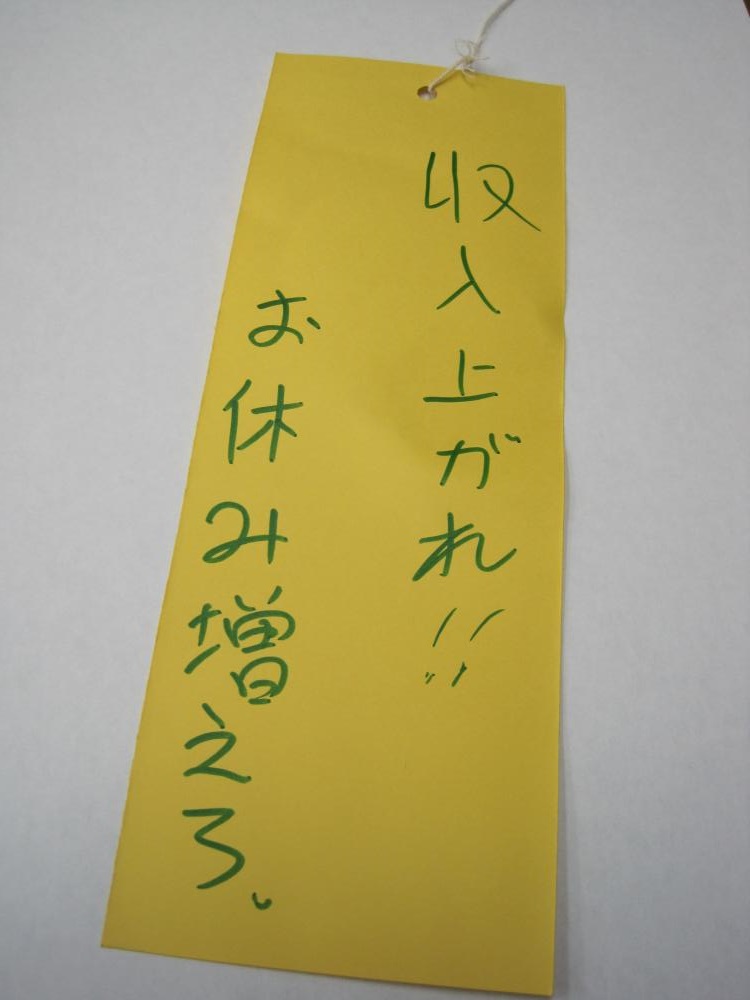 収入上がれ!!
お休み増えろ。